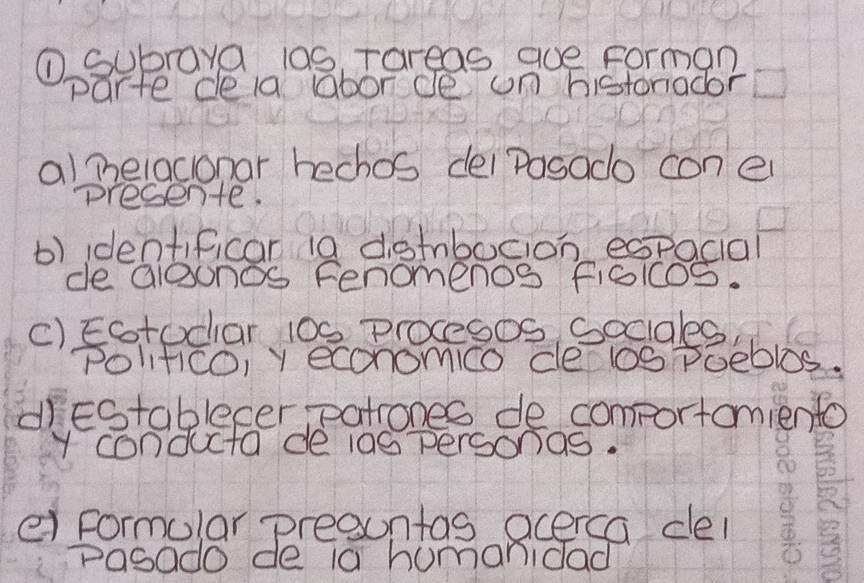 ① Subraya las Tareas que Forman
Parte de la labor de un historiador
a) Relacionar hechos del Pasado con el
presente.
b) identificar la distribucion espacial
de algunos Fenomenos Fisicos.
c) Estudiar los procesos sociales,
Politico, y economico de los Pueblos.
d) Establecer patrones de comportamiento
y conducta de las personas.
e) Formular preguntas acerca del
Pasado de la humanidad